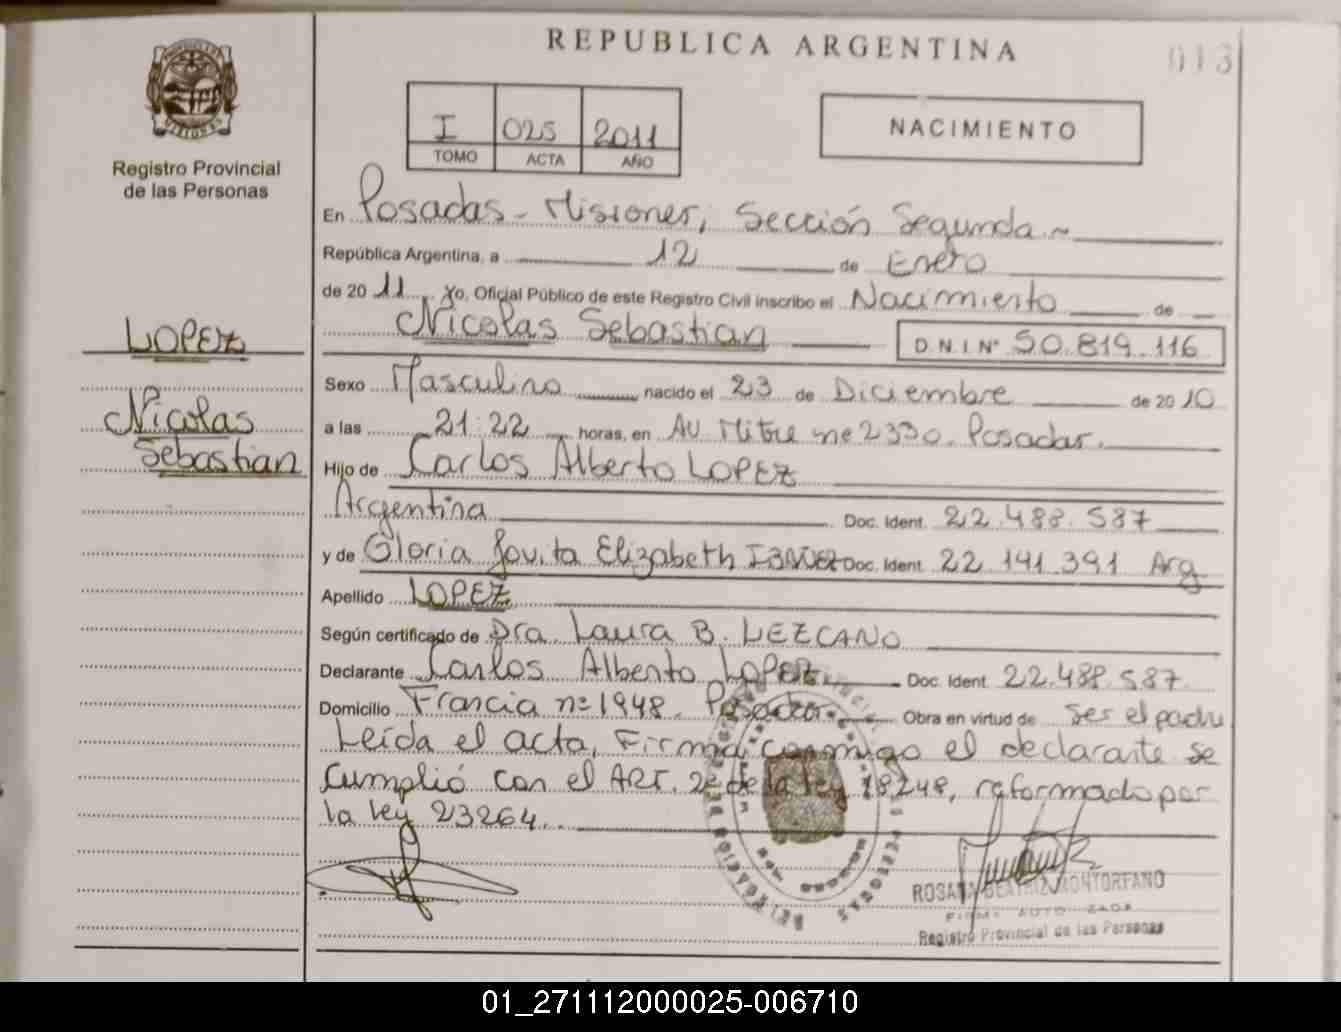 REPUBLICA ARGENTINA
013
MISIONES
Registro Provincial
de las Personas
I 025 2011
TOMO ACTA AÑO
NACIMIENTO
En Posadas - Misiones, Sección Segunda.~
República Argentina, a 12 de Enero
de 2011 Yo, Oficial Público de este Registro Civil inscribo el Nacimiento de
Nicolas Sebastian D.N.I Nº 50.819.116
LOPEZ
Nicolas
Sebastian
Sexo Masculino nacido el 23 de Diciembre de 2010
a las 21:22 horas, en AV. Mitre nº 2330. Posadas.
Hijo de Carlos Alberto LOPEZ
Argentina Doc. Ident. 22.488.587
y de Gloria Jovita Elizabeth IBAÑEZ Doc. Ident. 22.141.391 Arg
Apellido LOPEZ
Según certificado de Dra. Laura B. LEZCANO
Declarante Carlos Alberto LOPEZ. Doc. Ident. 22.488.587.
Domicilio Francia nº 1948. Posadas. Obra en virtud de ser el padre
Leída el acta, Firma conmigo el declarante se
cumplió con el ART. 2º de la ley 18248, reformado por
la ley 23264.
ROSANA BEATRIZ MONTORFANO
FIRMA AUTORIZADA
Registro Provincial de las Personas
01_271112000025-006710